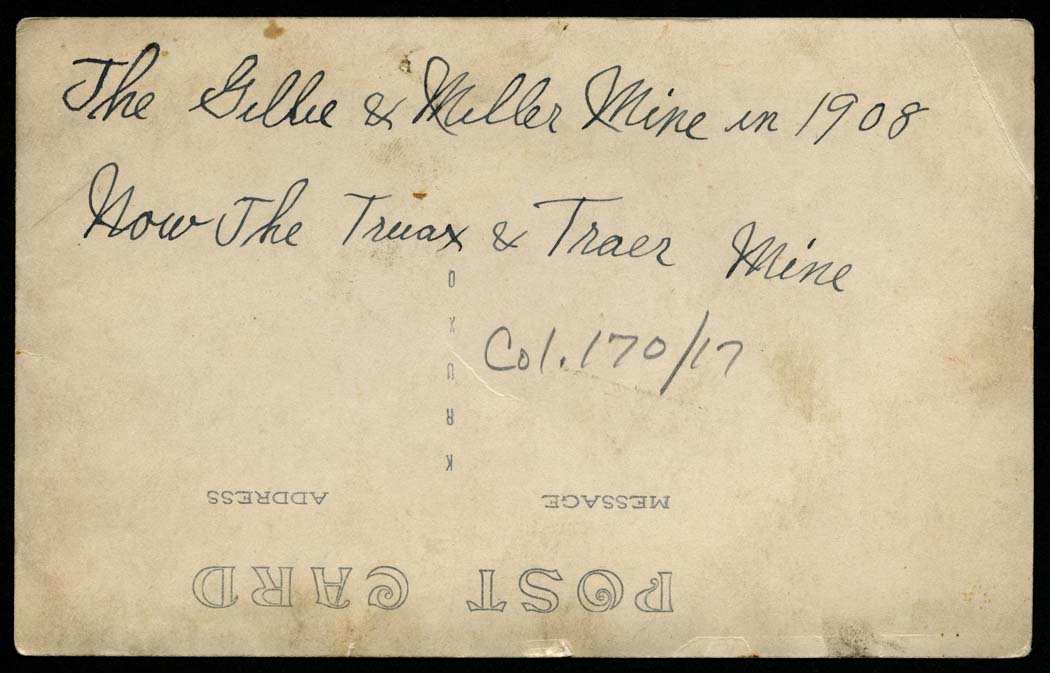 The Gillie & Miller Mine in 1908
Now The Truax & Traer Mine
Col. 170/17
KRUXO
MESSAGE
ADDRESS
POST CARD